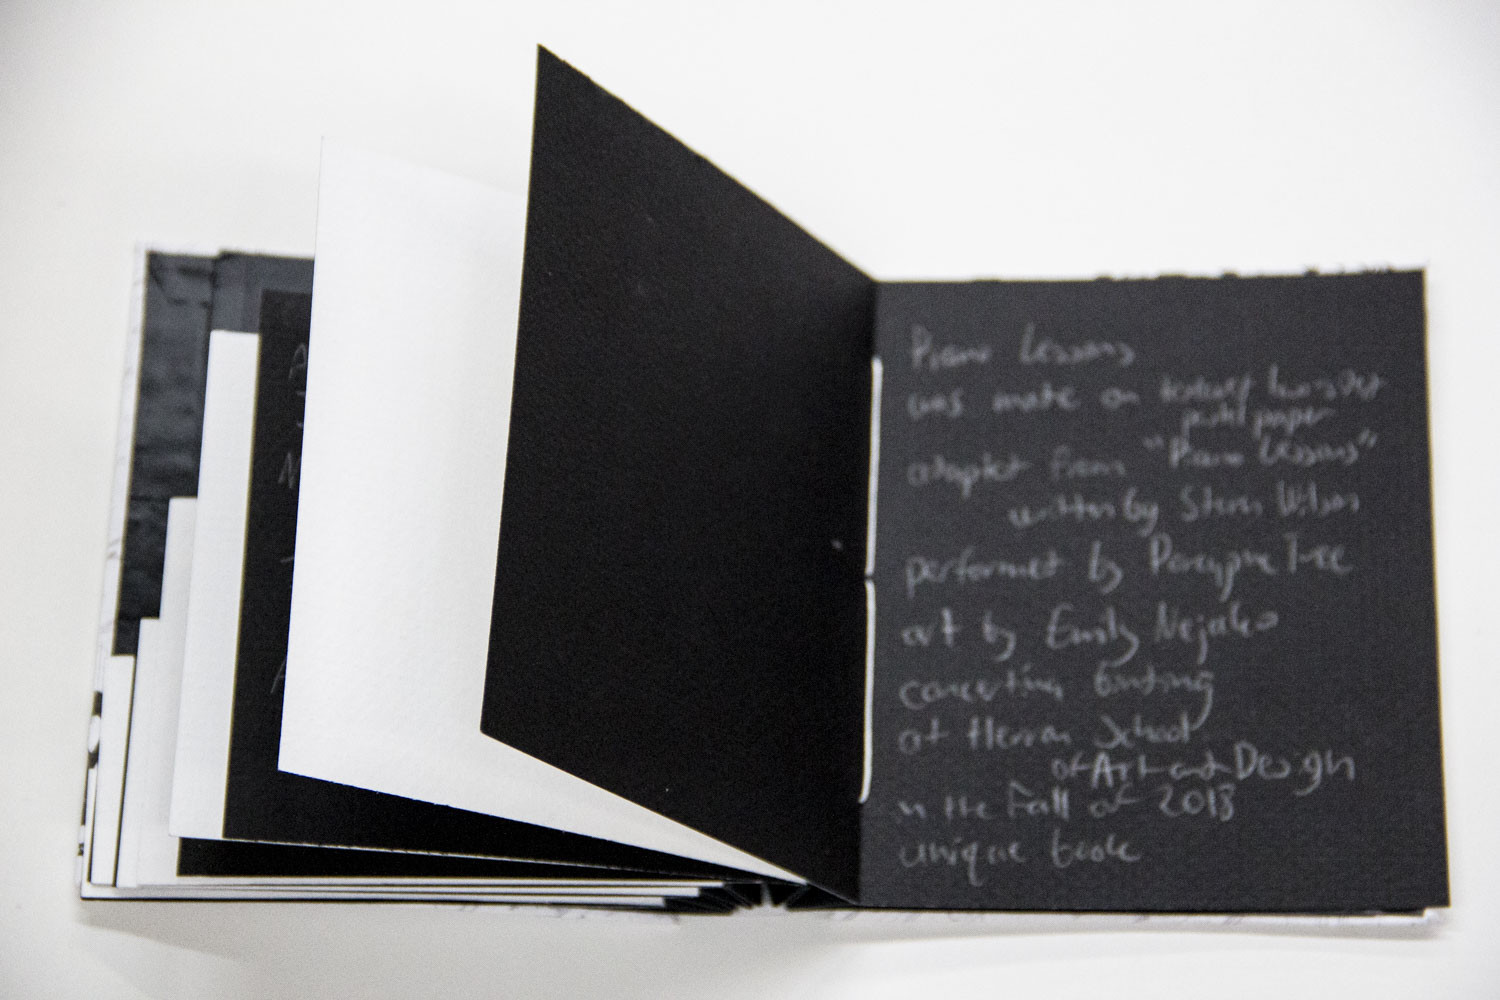 Piano Lessons
was made on
print paper
adapted from "Piano Lessons"
written by Steven Wilson
performed by Porcupine Tree
art by Emily Nejako
concertina binding
at Herron School
of Art and Design
in the Fall of 2013
unique book
A
M
A